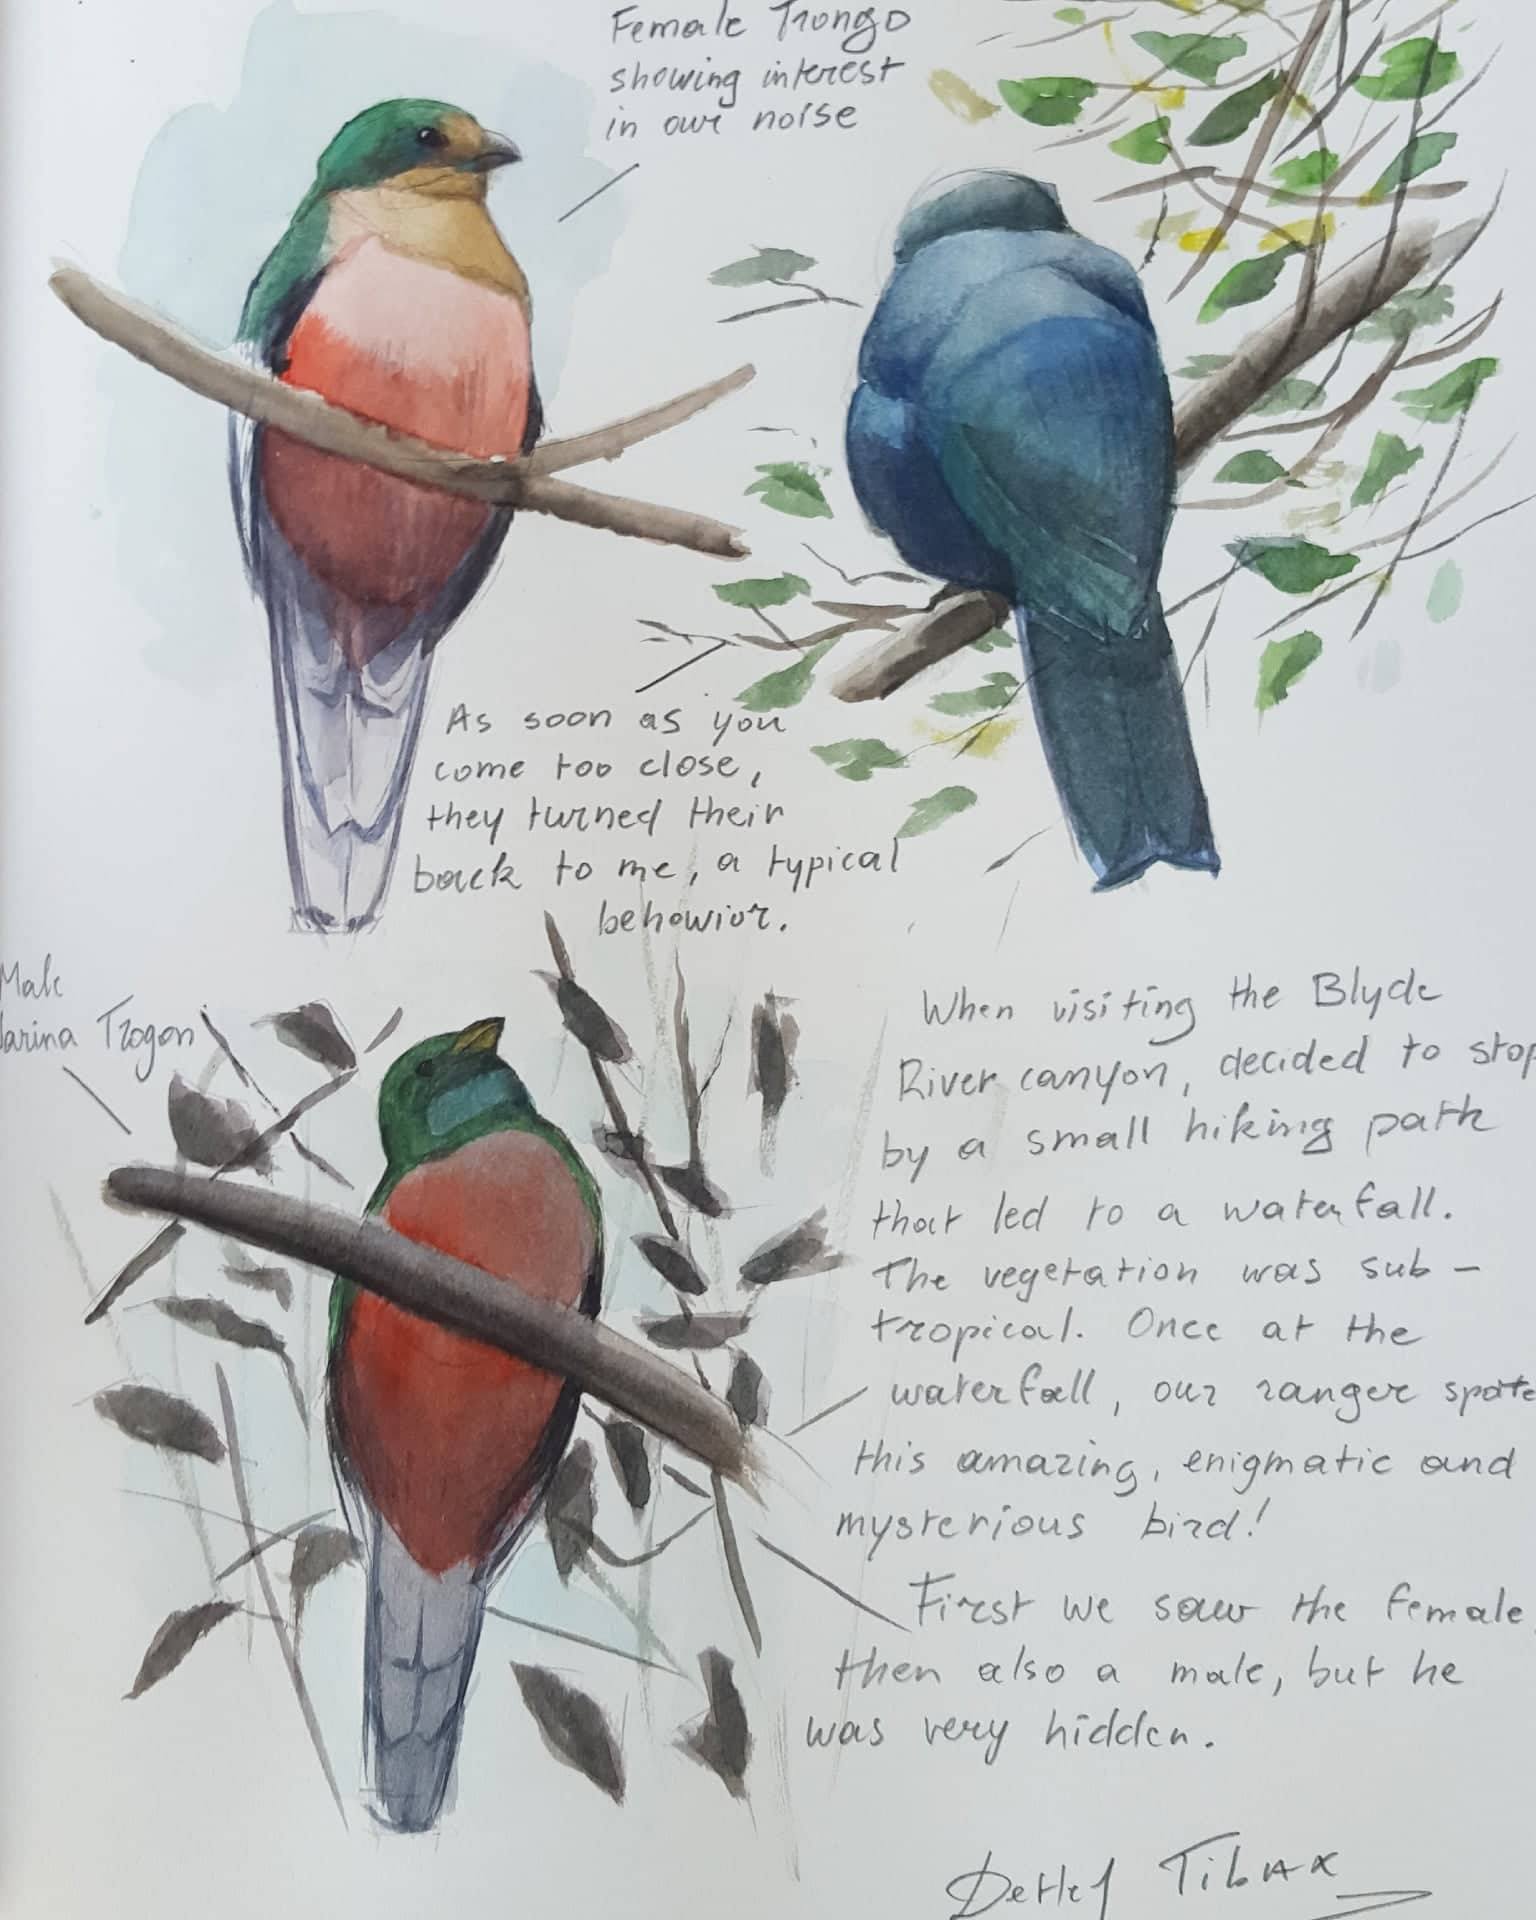 Female Trongo
showing interest
in our noise
As soon as you
come too close,
they turned their
back to me, a typical
behowior.
Male
Narina Trogon
When visiting the Blyde
River canyon, decided to stop
by a small hiking path
that led to a waterfall.
The vegetation was sub-
tropical. Once at the
waterfall, our ranger spotte
this amazing, enigmatic and
mysterious bird!
First we saw the female,
then also a male, but he
was very hidden.
Detlef Tibax